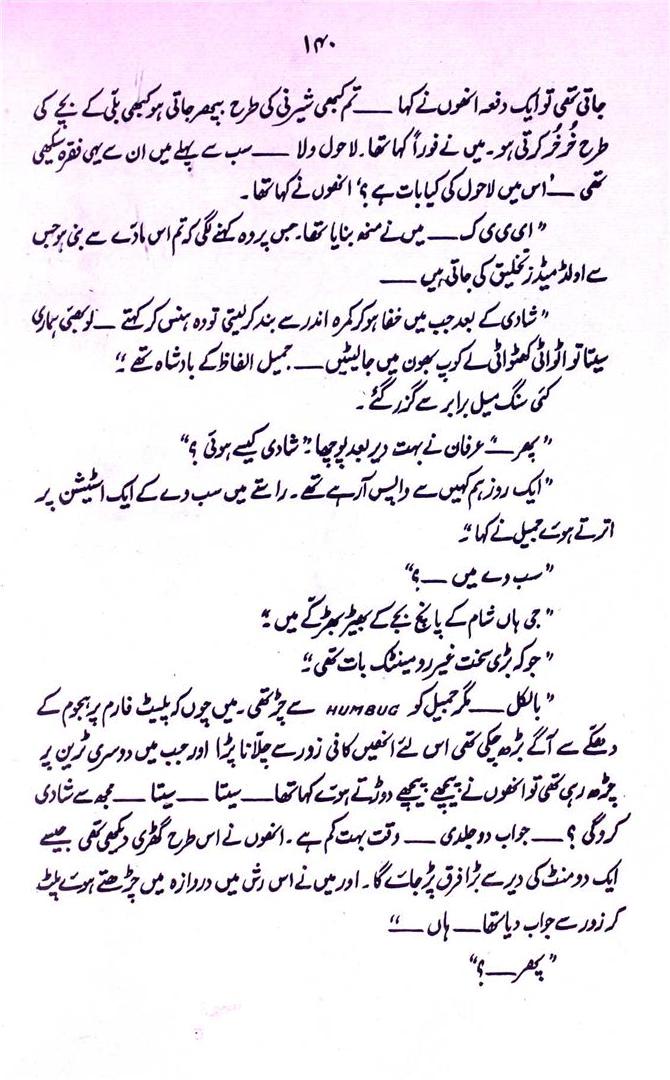 ۱۴۰
جاتی تھی تو ایک دفعہ انھوں نے کہا ــــ تم کبھی شیرنی کی طرح بپھر جاتی ہو کبھی بلّی کے بچے کی
طرح خُرخُر کرتی ہو۔ میں نے فوراً کہا تھا۔ لاحول ولا ــــ سب سے پہلے میں ان سے یہی فقرہ سیکھی
تھی ــــ ’اس میں لاحول کی کیا بات ہے؟‘ انھوں نے کہا تھا۔
”ای ی ی ک ــــ میں نے منھ بنایا تھا۔ جس پر وہ کہنے لگی کہ تم اس مادّے سے بنی ہو جس
سے اولڈ میڈز تخلیق کی جاتی ہیں ــــ
”شادی کے بعد جب میں خفا ہو کر کمرہ اندر سے بند کر لیتی تو وہ ہنس کر کہتے ــــ لو بھئی ہماری
سیتا تو اٹواٹی کھٹواٹی لے کوپ بھون میں جا لیٹیں ــــ جمیل الفاظ کے بادشاہ تھے۔“
کئی سنگ میل برابر سے گزر گئے۔
”پھر ــــ“ عرفان نے بہت دیر بعد پوچھا۔ ”شادی کیسے ہوئی؟“
”ایک روز ہم کہیں سے واپس آرہے تھے۔ راستے میں سب وے کے ایک اسٹیشن پر
اترتے ہوئے جمیل نے کہا۔“
”سب وے میں ــــ؟“
”جی ہاں شام کے پانچ بجے کے بھیڑ بھڑکے میں۔“
”جو کہ بڑی سخت غیر رومینٹک بات تھی۔“
”بالکل ــــ مگر جمیل کو HUMBUG سے چڑ تھی۔ میں چوں کہ پلیٹ فارم پر ہجوم کے
دھکّے سے آگے بڑھ چکی تھی اس لئے انھیں کافی زور سے چلّانا پڑا اور جب میں دوسری ٹرین پر
چڑھ رہی تھی تو انھوں نے پیچھے پیچھے دوڑتے ہوئے کہا تھا ــــ سیتا ــــ سیتا ــــ مجھ سے شادی
کروگی؟ ــــ جواب دو جلدی ــــ وقت بہت کم ہے۔ انھوں نے اس طرح گھڑی دیکھی تھی جیسے
ایک دو منٹ کی دیر سے بڑا فرق پڑ جائے گا۔ اور میں نے اس رش میں دروازہ میں چڑھتے ہوئے پلٹ
کر زور سے جواب دیا تھا ــــ ہاں ــــ“
”پھر ــــ؟“